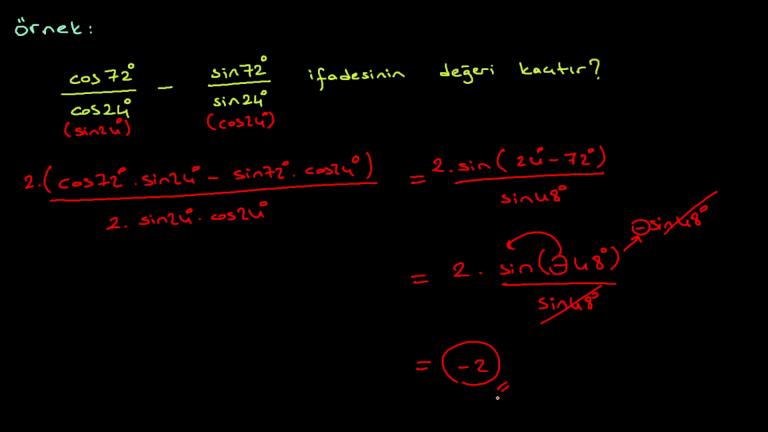 örnek:
cos72° / cos24° - sin72° / sin24° ifadesinin değeri kaçtır?
(sin24°) (cos24°)
2.(cos72°.sin24° - sin72°.cos24°) / 2. sin24°. cos24° = 2.sin(24°-72°) / sin48°
= 2. sin(-48°) / sin48° -sin48°
= -2